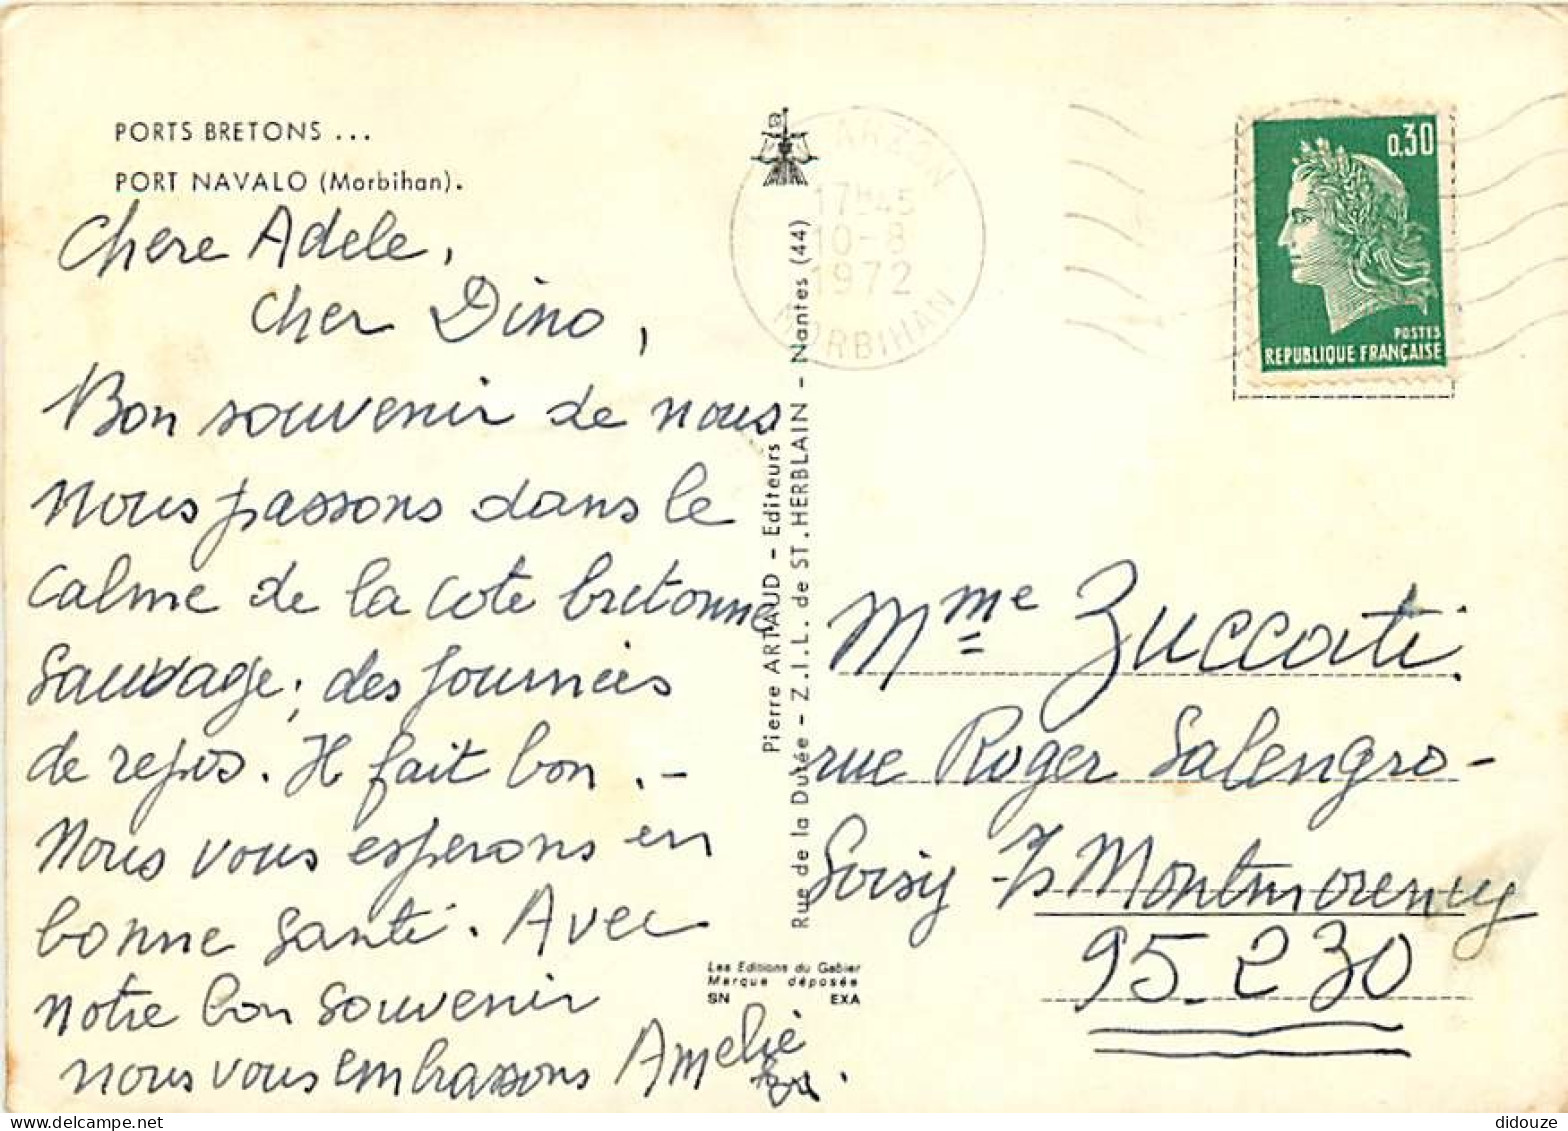 PORTS BRETONS ...
PORT NAVALO (Morbihan).
Chere Adele,
cher Dino,
Bon souvenir de nous
nous passons dans le
calme de la cote bretonne
sauvage; des journées
de repos. Il fait bon. -
Nous vous esperons en
bonne santé. Avec
notre bon souvenir
nous vous embrassons Amelie
Pierre ARTAUD - Editeurs
Rue de la Dutée - Z.I.L. de ST. HERBLAIN - Nantes (44)
Les Editions du Gabier
Marque déposée
SN EXA
ARZON
17H45
10-8
1972
MORBIHAN
0.30
POSTES
REPUBLIQUE FRANÇAISE
Mme Zuccati.
rue Roger Salengro -
Soisy -/s Montmorency
95-230
delcampe.net
didouze